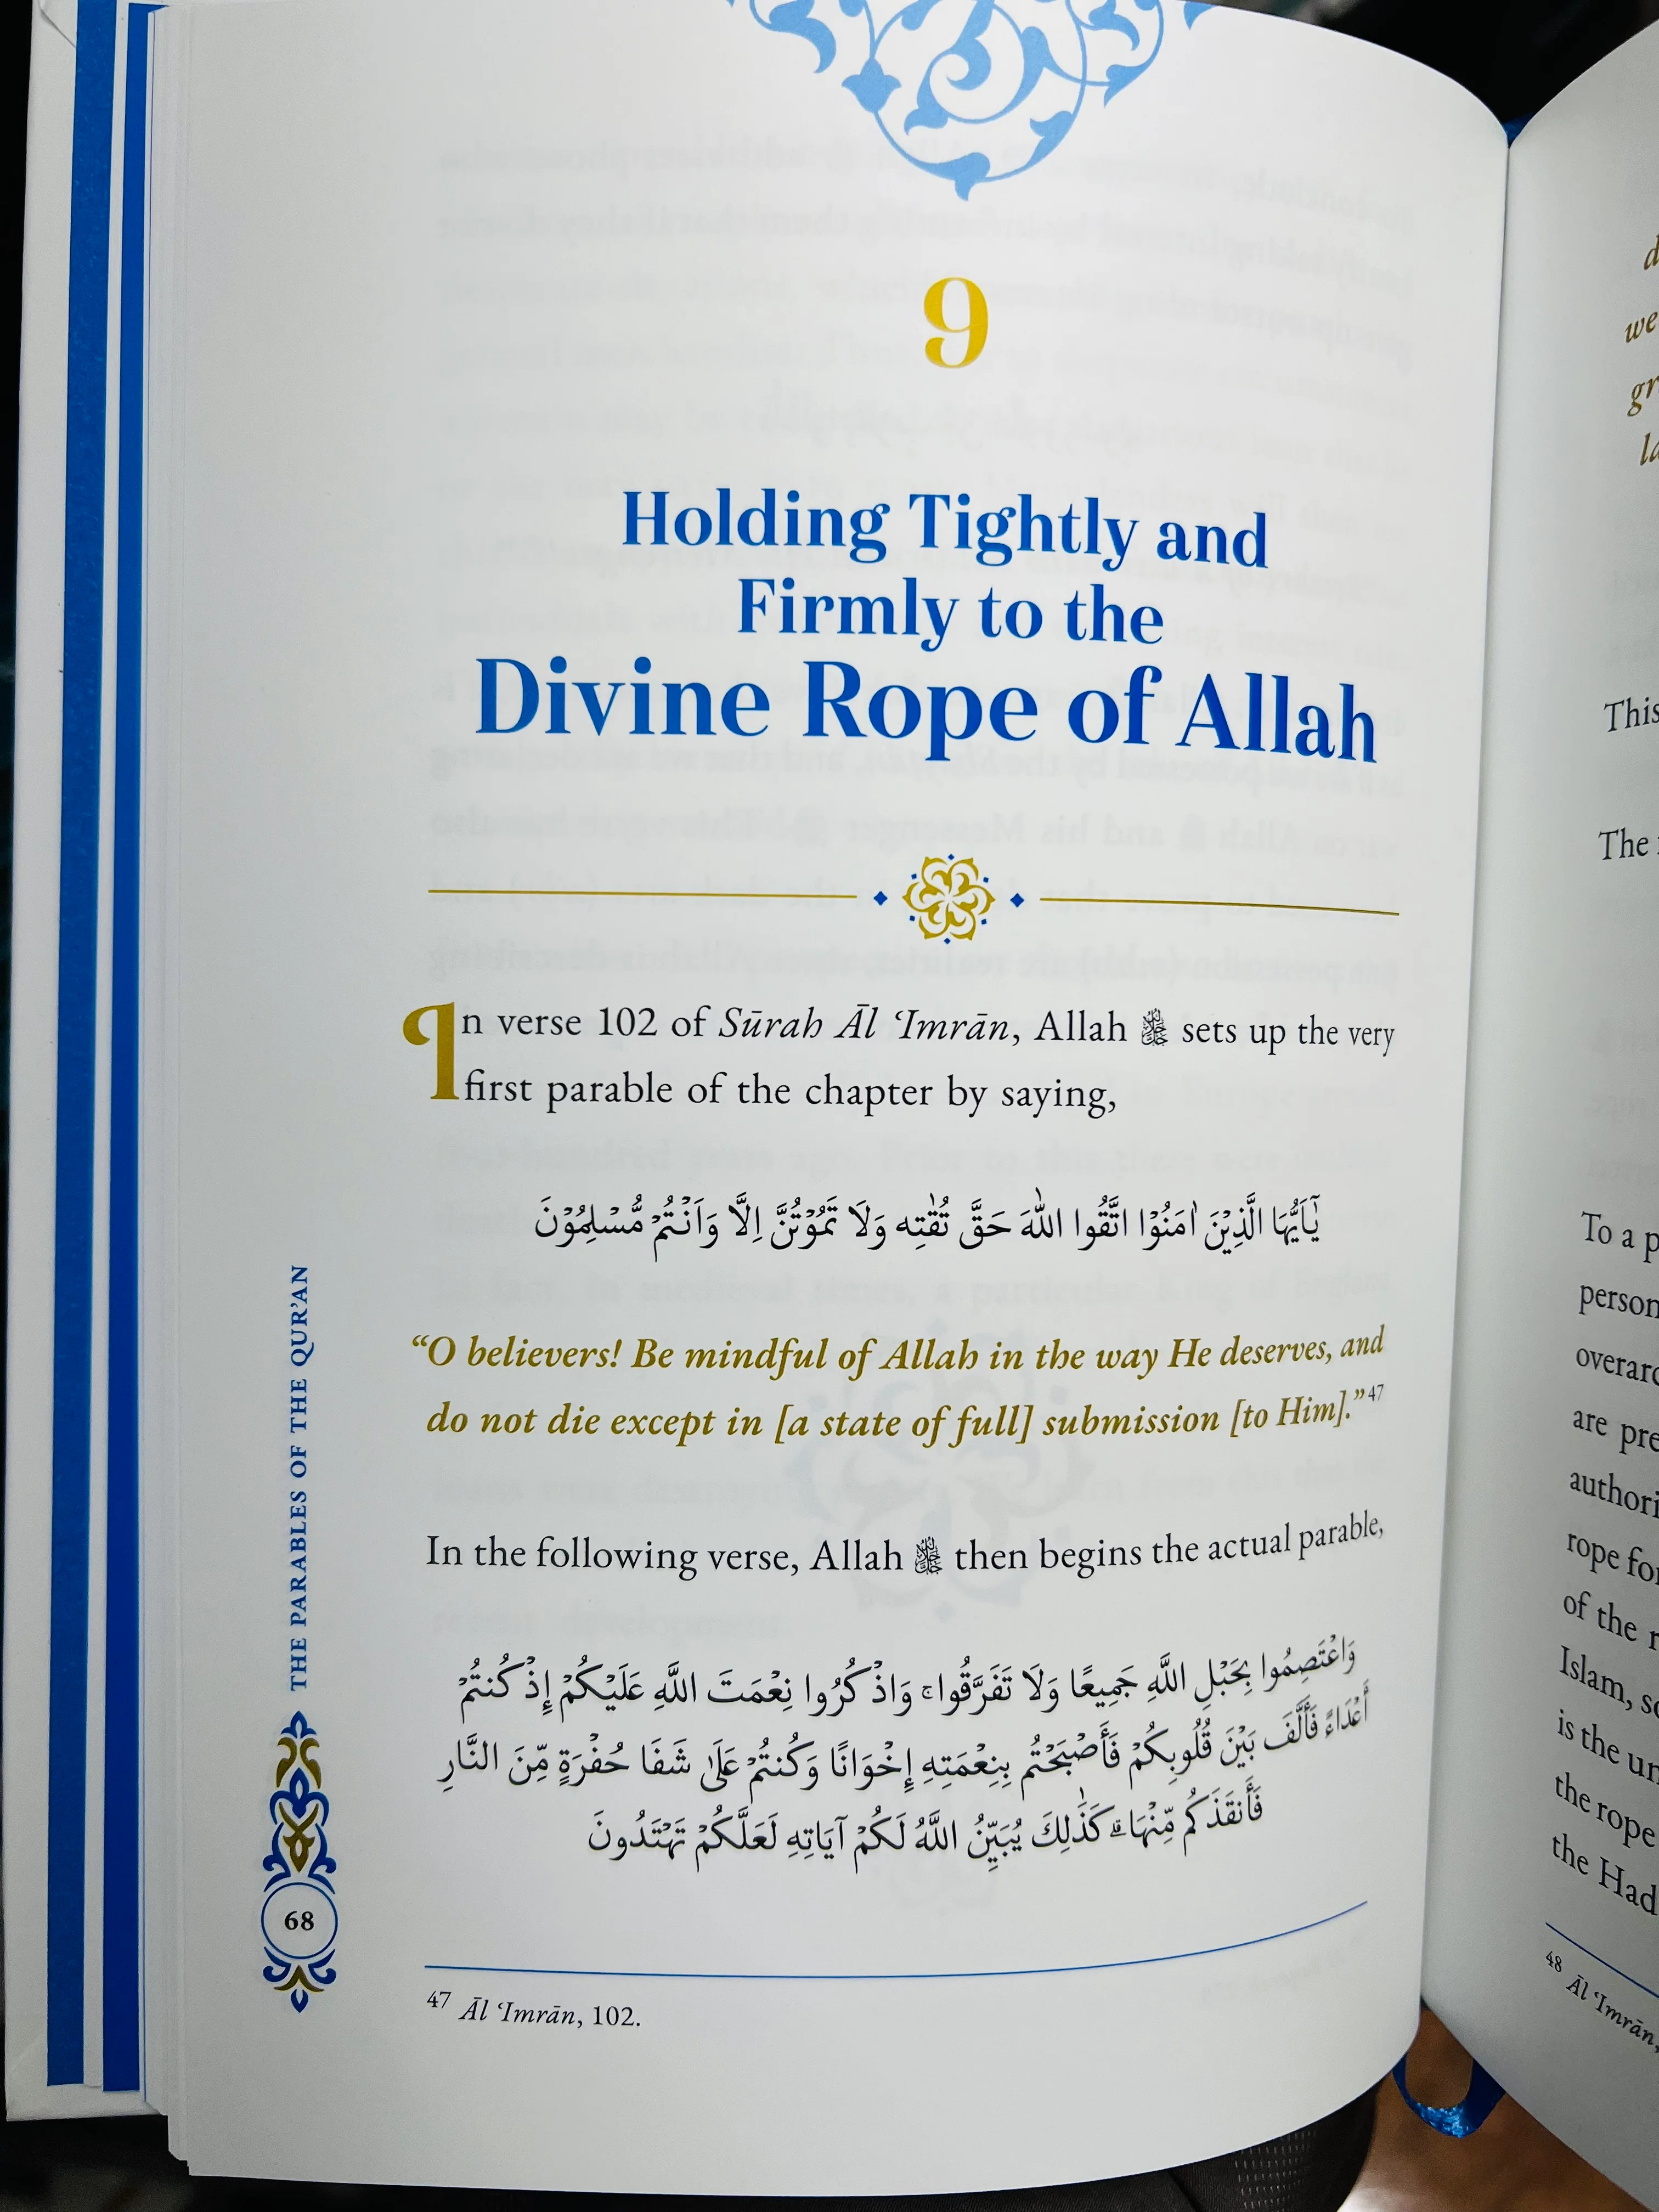 9
Holding Tightly and
Firmly to the
Divine Rope of Allah
In verse 102 of Sūrah Āl ʿImrān, Allah ﷻ sets up the very
first parable of the chapter by saying,
يٰٓاَيُّهَا الَّذِيْنَ اٰمَنُوْا اتَّقُوا اللّٰهَ حَقَّ تُقٰتِه وَلَا تَمُوْتُنَّ اِلَّا وَاَنْتُمْ مُّسْلِمُوْنَ
“O believers! Be mindful of Allah in the way He deserves, and
do not die except in [a state of full] submission [to Him].”47
In the following verse, Allah ﷻ then begins the actual parable,
وَاعْتَصِمُوا بِحَبْلِ اللَّهِ جَمِيعًا وَلَا تَفَرَّقُوا ۚ وَاذْكُرُوا نِعْمَتَ اللَّهِ عَلَيْكُمْ إِذْ كُنتُمْ
أَعْدَاءً فَأَلَّفَ بَيْنَ قُلُوبِكُمْ فَأَصْبَحْتُم بِنِعْمَتِهِ إِخْوَانًا وَكُنتُمْ عَلَىٰ شَفَا حُفْرَةٍ مِّنَ النَّارِ
فَأَنقَذَكُم مِّنْهَا ۗ كَذَٰلِكَ يُبَيِّنُ اللَّهُ لَكُمْ آيَاتِهِ لَعَلَّكُمْ تَهْتَدُونَ
47 Āl ʿImrān, 102.
THE PARABLES OF THE QUR’AN
68
we
This
The
To a
person
are
rope
of the
Islam,
is the
the rope
the
48 Āl ʿImrān,